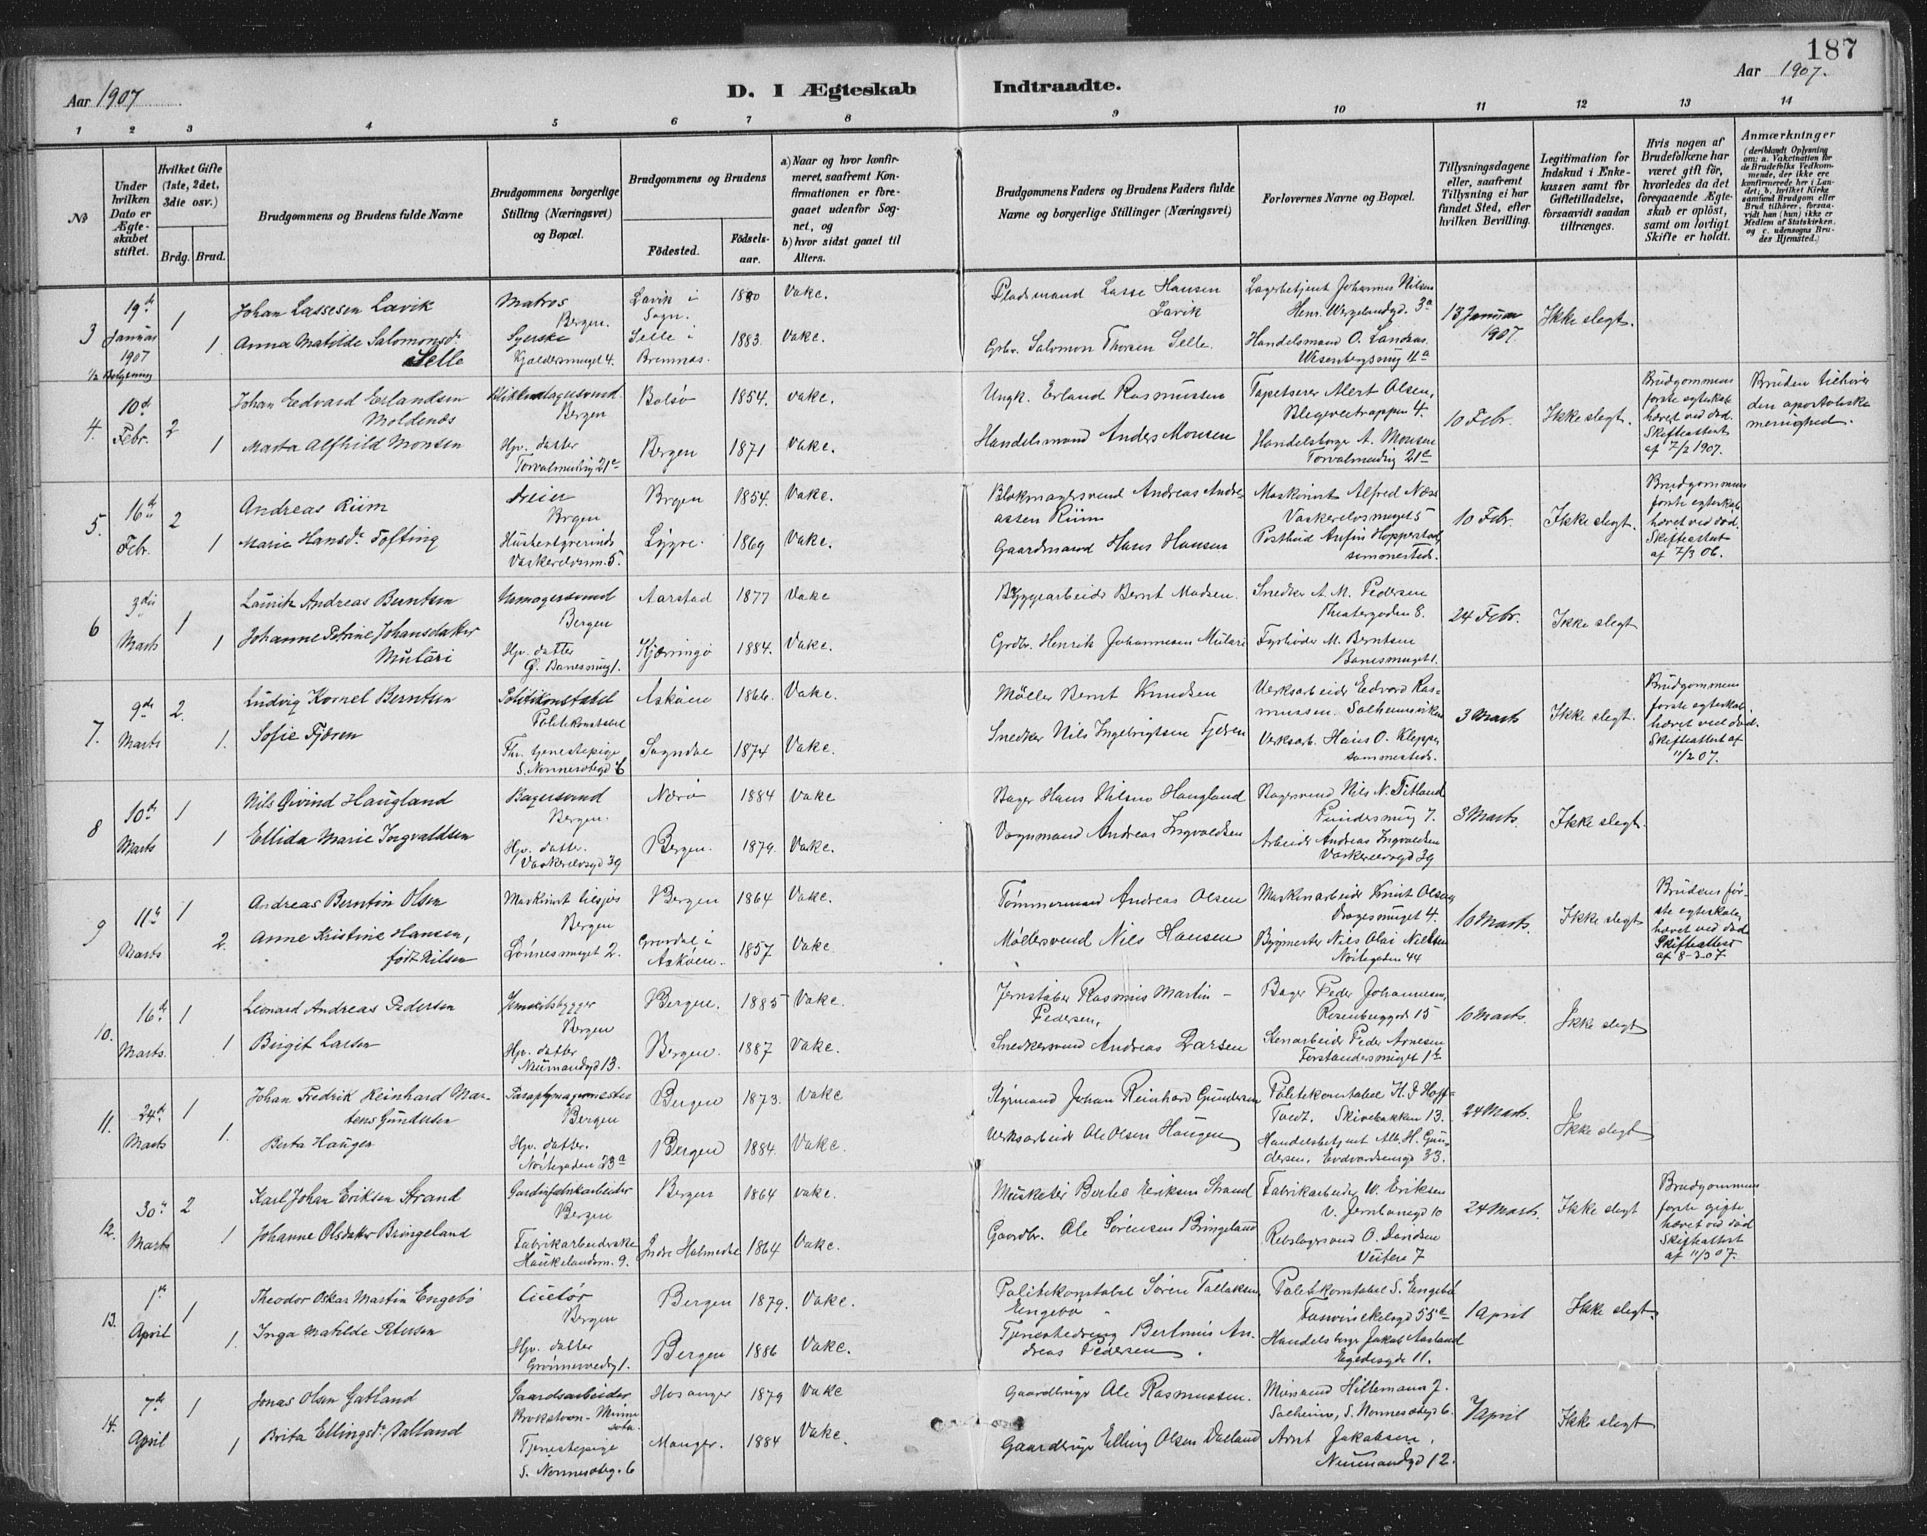 187
Aar 1907
D. I Ægteskab Indtraadte.
Aar 1907.
1 2 3 4 5 6 7 8 9 10 11 12 13 14
No
Under hvilken Dato er Ægteskabet stiftet.
Hvilket Gifte (1ste, 2det, 3die osv.)
Brdg. Brud.
Brudgommens og Brudens fulde Navne
Brudgommens borgerlige Stilling (Næringsvei) og Bopæl.
Brudgommens og Brudens
Födested.
Födselsaar.
a) Naar og hvor konfirmeret, saafremt Konfirmationen er foregaaet udenfor Sognet, og
b) hvor sidst gaaet til Alters.
Brudgommens Faders og Brudens Faders fulde Navne og borgerlige Stillinger (Næringsvei)
Forlovernes Navne og Bopæl.
Tillysningsdagene eller, saafremt Tillysning ei har fundet Sted, efter hvilken Bevilling.
Legitimation for Indskud i Enkekassen samt for Giftetilladelse, forsaavidt saadan tiltrænges.
Hvis nogen af Brudefolkene har været gift för, hvorledes da det foregaaende Ægteskab er oplöst, samt om lovligt Skifte er holdt.
Anmærkninger (deriblandt Oplysning om: a. Vaccination for de Brudefolks Vedkommende, der ikke ere konfirmerede her i Landet; b, hvilket Kirkesamfund Brudgom eller Brud tilhörer, forsaavidt han (hun) ikke er Medlem af Statskirken, og c. udensogns Brudes Hjemsted.)
3 19de Januar 1907 1 Johan Lassesen Lavik Matros Bergen. Lavik i Sogn. 1880 Vake. Pladsmand Lasse Hansen Lavik Lagerbetjent Johannes Nilsen Henr. Wergelandgd. 3a 13 Januar 1907. Ikke slegt.
1. Anna Matilde Salomonsdr Selle Syerske Selle i Bremnæs. 1883. Vake. Grbr. Salomon Thorsen Selle. Handelsmand O. Landaas Wesenbergsmug 11a
4. 10d Febr. 2 Johan Edvard Erlandsen Moldenæs Bergen Bolsø 1854. Vake. Ungk. Erland Rasmussen Tapetserer Alert Olsen, 10 Febr. Ikke slegt. Brudgommens forste egteskab hævet ved død. Skifteattest af 7/2 1907. Bruden tilhører den apostoliske menighed.
1 Marta Alfhild Monsen Hjv. datter Torvalmening 21a Bergen 1871 Vake. Handelsmand Anders Monsen Handelsborge A. Monsen Torvalmening 21a
5. 16de Febr. 2 Andreas Riim Dreier Bergen Brgen 1854. Vake. Blokmagersvend Andreas Andreassen Riim Maskinist Alfred Næss Vaskerelvsmuget 5 10 Febr. Ikke slegt. Brudgommens forste egteskab hævet ved død. Skifteattest af 7/3 06.
1 Marie Hansdr. Tofting Husbestyrerinde Vaskerelvsm. 5. Lygre. 1869 Vake. Gaardmand Hans Hansen Postbud Anfin Hopperstad
6 3die Marts 1 Lauritz Andreas Berntsen Bergen Aarstad 1877 Vake Byggearbeider Bernt Madsen. Snedker A. M. Pedersen Theatergaden 8. 24 Febr. Ikke slegt
1 Johanne Petrine Johansdatter Hjv. datter Kjærringø 1884. Vake. Grdbr. Henrik Johannessen Fyrbøder M. Berntsen Banesmuget 1.
7. 9de Marts 2. Ludvig Kornel Berntsen Politikonstabel Askøen 1866. Vake. Møller Bernt Knudsen Verksarbeider Edvard Rasmussen. Solheimsviken 3 Marts Ikke slegt. Brudgommens forste egteskab hævet ved død. Skifteattest af 11/2 07.
1. Sofie Fjæren Fhv. tjenestepige S. Nonnesætergd 6 Sogndal 1874 Vake. Snedker Nils Ingebrigtsen Fjæren Verksarb. Hans O. Kleppe sammesteds.
8 10de Marts 1 Nils Øivind Haugland Bagersvend Bergen. Nærø 1884 Vake Bager Hans Nilsen Haugland Bagersvend Nils N. Titland Pundersmug 7. 3 Marts. Ikke slegt.
1 Ellida Marie Ingvaldsen Hjv. datter. Vaskerelvsgd 39 Bergen. 1879. Vake. Vognmand Andreas Ingvaldsen Arbeider Andreas Ingvaldsen Vaskerelvsgd 39
9 11te Marts 1 Andreas Berntin Olsen Maskinist tilsjøs Bergen Bergen 1864 Vake. Tømmermand Andreas Olsen Maskinarbeider Knut Olsen, Dragesmuget 4. 10 Marts. Ikke slegt Brudens første egteskab hævet ved død Skifteattest af 8-3 07
2. Anne Kristine Hansen, født Nilsen Lønnesmuget 2. Askøen. 1857 Vake. Møllersvend Nils Hansen Bygmester Nils Olai Nielsen Nøstegaten 44
10. 16de Marts. 1 Leonard Andreas Pedersen Jernskibsbygger Bergen Bergen. 1885 Vake. Jernstøber Rasmus Martin Pedersen, Bager Peder Johannesen, Rosenberggd 15 10 Marts. Ikke slegt
1 Birgit Larsen Hjv. datter Neumandsgd 13. Bergen. 1887 Vake. Snedkersvend Andreas Larsen Stenarbeider Peder Arnesen Forstandersmuget 1b
11. 24d Marts 1 Johan Fredrik Reinhard Martens Gundersen Paraplymagermester Bergen Bergen 1873. Vake Styrmand Johan Reinhard Gundersen Politikonstabel H. J. Hofftvedt. Skivebakken 13. 24 Marts. Ikke slegt
1. Berta Haugen Hjv. datter. Nøstegaden 23a Bergen 1884. Vake. Verksarbeider Ole Olsen Haugen Handelsbetjent Alb. H. Gundersen. Edvardsensgd 33.
12. 30te Marts 2 Karl Johan Eriksen Strand Gardinfabrikarbeider Bergen Bergen 1864 Vake. Musketer Bertel Eriksen Strand Fabrikarbeider W. Eriksen v. Jernbanegd 10 24 Marts. Ikke slegt Brudgommens forste gifte hævet ved død Skifteattest af 11/3 07.
1 Johanne Olsdatter Bringeland Fabrikarbeiderske Haukelandsm. 9. Indre Holmedal 1864 Vake. Gaardbr. Ole Sørensen Bringeland Rebslagersvend O. Davidsen Veiten 7
13. 1ste April 1 Theodor Oskar Martin Engebø Bergen Bergen 1879. Vake. Politikonstabel Søren Tollaksen Engebø Politikonstabel S. Engebø 55a 1 April Ikke slegt.
1. Inga Matilde Petersen Hjv. datter Bergen 1886 Vake. Bertinius Andreas Pedersen. Handelsborger Jakob Aasland Egedesgd 11.
14. 7de April 1 Jonas Olsen Gatland Gaardsarbeider Minnesota. Hosanger 1879 Vake Gaardbruger Ole Rasmussen. Murmand Hillemann J. Solheim, S. Nonnesætergd 6. 7 April Ikke slegt
1 Brita Ellingsdr. Dalland Tjenestepige S. Nonnesæterg. 6 Manger. 1884 Vake. Gaardbruger Elling Olsen Dalland Arnt Jakobsen, Neumandsgd 12.